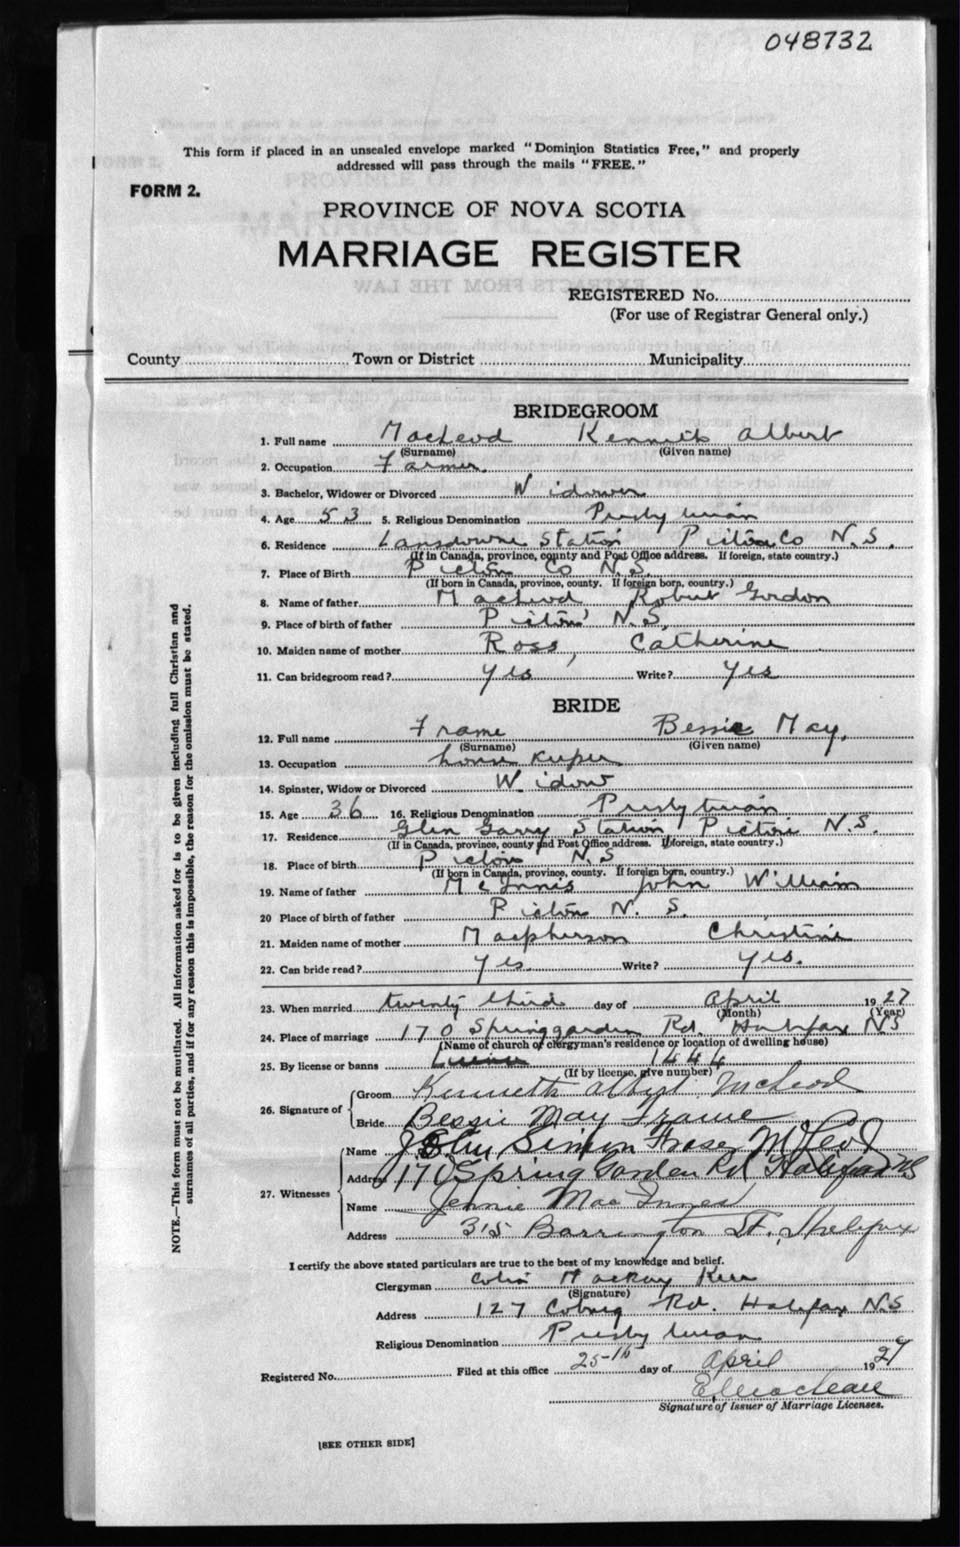 048732
This form if placed in an unsealed envelope marked "Dominion Statistics Free," and properly
addressed will pass through the mails "FREE."
FORM 2.
PROVINCE OF NOVA SCOTIA
MARRIAGE REGISTER
REGISTERED No.
(For use of Registrar General only.)
County Town or District Municipality
BRIDEGROOM
1. Full name MacLeod Kenneth Albert
(Surname) (Given name)
2. Occupation Farmer.
3. Bachelor, Widower or Divorced Widower
4. Age 53 5. Religious Denomination Presbyterian
6. Residence Lansdowne Station Pictou Co N.S.
(If in Canada, province, county and Post Office address. If foreign, state country.)
7. Place of Birth Pictou Co N.S.
(If born in Canada, province, county. If foreign born, country.)
8. Name of father MacLeod Robert Gordon
9. Place of birth of father Pictou N.S.
10. Maiden name of mother Ross, Catherine
11. Can bridegroom read? Yes Write? Yes
BRIDE
12. Full name Frame Bessie May,
(Surname) (Given name)
13. Occupation house keeper
14. Spinster, Widow or Divorced Widow
15. Age 36 16. Religious Denomination Presbyterian
17. Residence Glen Garry Station, Pictou N.S.
(If in Canada, province, county and Post Office address. If foreign, state country.)
18. Place of birth Pictou N.S.
(If born in Canada, province, county. If foreign born, country.)
19. Name of father McInnis John William
20 Place of birth of father Pictou N. S.
21. Maiden name of mother Macpherson Christine
22. Can bride read? Yes Write? Yes.
23. When married twenty third day of April 1927
(Month) (Year)
24. Place of marriage 170 Springgarden Rd. Halifax NS
(Name of church or clergyman's residence or location of dwelling house)
25. By license or banns 1444
(If by license, give number)
26. Signature of Groom Kenneth Albert McLeod
Bride Bessie May Frame
27. Witnesses Name John Simon Fraser McLeod
Address 170 Spring Garden Rd Halifax NS
Name Jennie MacInnes
Address 315 Barrington St., Halifax
I certify the above stated particulars are true to the best of my knowledge and belief.
Clergyman Colin Mackay Kerr
(Signature)
Address 127 Coburg Rd. Halifax N.S
Religious Denomination Presbyterian
Registered No. Filed at this office 25-th day of April 1927
Signature of Issuer of Marriage Licenses.
[SEE OTHER SIDE]
NOTE.—This form must not be mutilated. All information asked for is to be given including full Christian and
surnames of all parties, and if for any reason this is impossible, the reason for the omission must be stated.